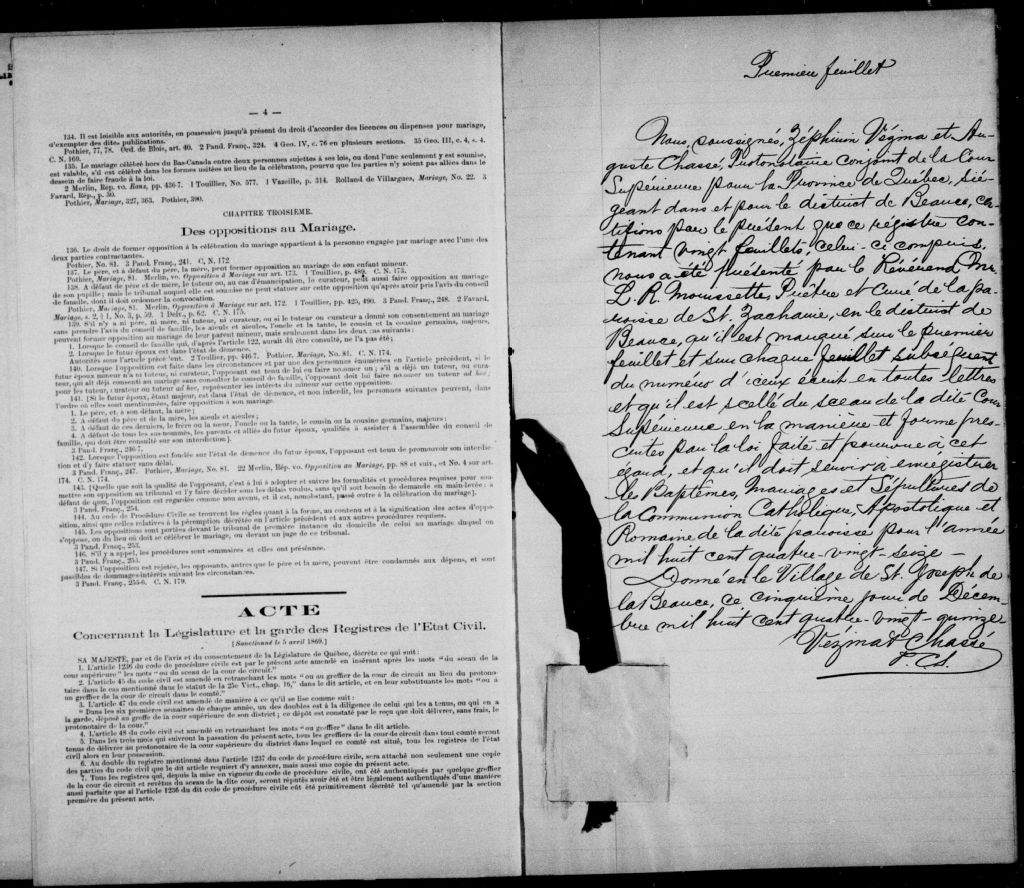 — 4 —
134. Il est loisible aux autorités, en possession jusqu'à présent du droit d'accorder des licences ou dispenses pour mariage,
d'exempter des dites publications.
Pothier, 77, 78. Ord. de Blois, art. 40. 2 Pand. Franç., 324. 4 Geo. IV, c. 76 en plusieurs sections. 35 Geo. III, c. 4, s. 4.
C. N. 169.
135. Le mariage célébré hors du Bas-Canada entre deux personnes sujettes à ses lois, ou dont l'une seulement y est soumise,
est valable, s'il est célébré dans les formes usitées au lieu de la célébration, pourvu que les parties n'y soient pas allées dans le
dessein de faire fraude à la loi.
2 Merlin, Rep. vo. Bans, pp. 436-7. 1 Touillier, No. 577. 1 Vazeille, p. 314. Rolland de Villargues, Mariage, No. 22. 3
Favard, Rép., p. 50.
Pothier, Mariage, 327, 363. Pothier, 390.
CHAPITRE TROISIÈME.
Des oppositions au Mariage.
136. Le droit de former opposition à la célébration du mariage appartient à la personne engagée par mariage avec l'une des
deux parties contractantes.
Pothier, No. 81. 3 Pand. Franç., 241. C. N. 172
137. Le père, et à défaut du père, la mère, peut former opposition au mariage de son enfant mineur.
Pothier, Mariage, 81. Merlin, vo. Opposition à Mariage sur art. 173. 1 Touillier, p. 489. C. N. 173.
138. A défaut de père et de mère, le tuteur ou, au cas d'émancipation, le curateur, peut aussi faire opposition au mariage
de son pupille; mais le tribunal auquel elle est soumise ne peut statuer sur cette opposition qu'après avoir pris l'avis du conseil
de famille, dont il doit ordonner la convocation.
Pothier, Mariage, 81. Merlin, Opposition à Mariage sur art. 172. 1 Touillier, pp. 425, 490. 3 Pand. Franç., 248. 2 Favard,
Mariage, s. 2, § 1, No. 3, p. 59. 1 Delv., p. 62. C. N. 175.
139. S'il n'y a ni père, ni mère, ni tuteur, ni curateur, ou si le tuteur ou curateur a donné son consentement au mariage
sans prendre l'avis du conseil de famille, les aïeuls et aïeules, l'oncle et la tante, le cousin et la cousine germains, majeurs,
peuvent former opposition au mariage de leur parent mineur, mais seulement dans les deux cas suivants:
1. Lorsque le conseil de famille qui, d'après l'article 122, aurait dû être consulté, ne l'a pas été;
2. Lorsque le futur époux est dans l'état de démence.
Autorités sous l'article précédent. 2 Touillier, pp. 446-7. Pothier, Mariage, No. 81. C. N. 174.
140. Lorsque l'opposition est faite dans les circonstances et par une des personnes énumérées en l'article précédent, si le
futur époux mineur n'a ni tuteur, ni curateur, l'opposant est tenu de lui en faire nommer un; s'il a déjà un tuteur, ou cura-
teur, qui ait déjà consenti au mariage sans consulter le conseil de famille, l'opposant doit lui faire nommer un tuteur ad hoc;
pour les tuteur, curateur ou tuteur ad hoc, représenter les intérêts du mineur sur cette opposition.
141. [Si le futur époux, étant majeur, est dans l'état de démence, et non interdit, les personnes suivantes peuvent, dans
l'ordre où elles sont mentionnées, faire opposition à son mariage.
1. Le père, et, à son défaut, la mère;
2. A défaut du père et de la mère, les aïeuls et aïeules;
3. A défaut de ces derniers, le frère ou la sœur, l'oncle ou la tante, le cousin ou la cousine germains, majeurs;
4. A défaut de tous les sus-nommés, les parents et alliés du futur époux, qualifiés à assister à l'assemblée du conseil de
famille, qui doit être consulté sur son interdiction].
3 Pand. Franç., 246-7.
142. Lorsque l'opposition est fondée sur l'état de démence du futur époux, l'opposant est tenu de promouvoir son interdic-
tion et d'y faire statuer sans délai.
3 Pand. Franç., 247. Pothier, Mariage, No. 81. 22 Merlin, Rép. vo. Opposition au Mariage, pp. 88 et suiv., et No. 4 sur art.
174. C. N. 174.
143. [Quelle que soit la qualité de l'opposant, c'est à lui à adopter et suivre les formalités et procédures requises pour sou-
mettre son opposition au tribunal et l'y faire décider sous les délais voulus, sans qu'il soit besoin de demande en main-levée: à
défaut de quoi, l'opposition est regardée comme non avenue, et il est, nonobstant, passé outre à la célébration du mariage].
3 Pand. Franç., 254.
144. Au code de Procédure Civile se trouvent les règles quant à la forme, au contenu et à la signification des actes d'oppo-
sition, ainsi que celles relatives à la péremption décrétée en l'article précédent et aux autres procédures requises.
145. Les oppositions sont portées devant le tribunal de première instance du domicile de celui au mariage duquel on
s'oppose, ou du lieu où doit se célébrer le mariage, ou devant un juge de ce tribunal.
3 Pand. Franç., 253.
146. S'il y a appel, les procédures sont sommaires et elles ont préséance.
3 Pand. Franç., 255.
147. Si l'opposition est rejetée, les opposants, autres que le père et la mère, peuvent être condamnés aux dépens, et sont
passibles de dommages-intérêts suivant les circonstances.
3 Pand. Franç., 255-6. C. N. 179.
ACTE
Concernant la Législature et la garde des Registres de l'Etat Civil.
[Sanctionné le 5 avril 1869.]
SA MAJESTE, par et de l'avis et du consentement de la Législature de Québec, décrète ce qui suit:
1. L'article 1236 du code de procédure civile est par le présent acte amendé en insérant après les mots "du sceau de la
cour supérieure" les mots "ou du sceau de la cour de circuit."
2. L'article 45 du code civil est amendé en retranchant les mots "ou au greffier de la cour de circuit au lieu du protono-
taire dans le cas mentionné dans le statut de la 25e Vict., chap. 16," dans le dit article, et en leur substituant les mots "ou à
un greffier de la cour de circuit dans le comté."
3. L'article 47 du code civil est amendé de manière à ce qu'il se lise comme suit:
"Dans les six premières semaines de chaque année, un des doubles est à la diligence de celui qui les a tenus, ou qui en a
la garde, déposé au greffe de la cour supérieure de son district; ce dépôt est constaté par le reçu que doit délivrer, sans frais, le
protonotaire de la cour."
4. L'article 48 du code civil est amendé en retranchant les mots "ou greffier" dans le dit article.
5. Dans les trois mois qui suivront la passation du présent acte, tous les greffiers de la cour de circuit dans tout comté seront
tenus de délivrer au protonotaire de la cour supérieure du district dans lequel ce comté est situé, tous les registres de l'état
civil alors en leur possession.
6. Au double du registre mentionné dans l'article 1237 du code de procédure civile, sera attaché non seulement une copie
des parties du code civil que le dit article requiert d'y annexer, mais aussi une copie du présent acte.
7. Tous les registres qui, depuis la mise en vigueur du code de procédure civile, ont été authentiqués par quelque greffier
de la cour de circuit et revêtus du sceau de la dite cour, seront réputés avoir été et être légalement authentiqués d'une manière
aussi parfaite que si l'article 1236 du dit code de procédure civile eût été primitivement décrété tel qu'amendé par la section
première du présent acte.
Premier feuillet
Nous, soussignés, Zéphirin Vézina et Au-
guste Chassé, Protonotaire conjoint de la Cour
Supérieure pour la Province de Québec, sié-
geant dans et pour le district de Beauce, cer-
tifions par le présent que ce régistre con-
tenant vingt feuillets, celui-ci compris,
nous a été présenté par le Révérend Mr.
L. R. Morissette, Prêtre et Curé de la pa-
roisse de St. Zacharie, en le district de
Beauce, qu'il est marqué sur le premier
feuillet et sur chaque feuillet subséquent
du numéro d'iceux écrit en toutes lettres
et qu'il est scellé du sceau de la dite Cour
Supérieure en la manière et forme pres-
crites par la loi faite et pourvue à cet
égard, et qu'il doit servir à enrégistrer
les Baptêmes, Mariages et Sépultures de
la Communion Catholique, Apostolique et
Romaine de la dite paroisse pour l'année
mil huit cent quatre-vingt-seize —
Donné en le Village de St. Joseph de
la Beauce, ce cinquième jour de Décem-
bre mil huit cent quatre-vingt-quinze
Vézina & Chassé
P. C. S.